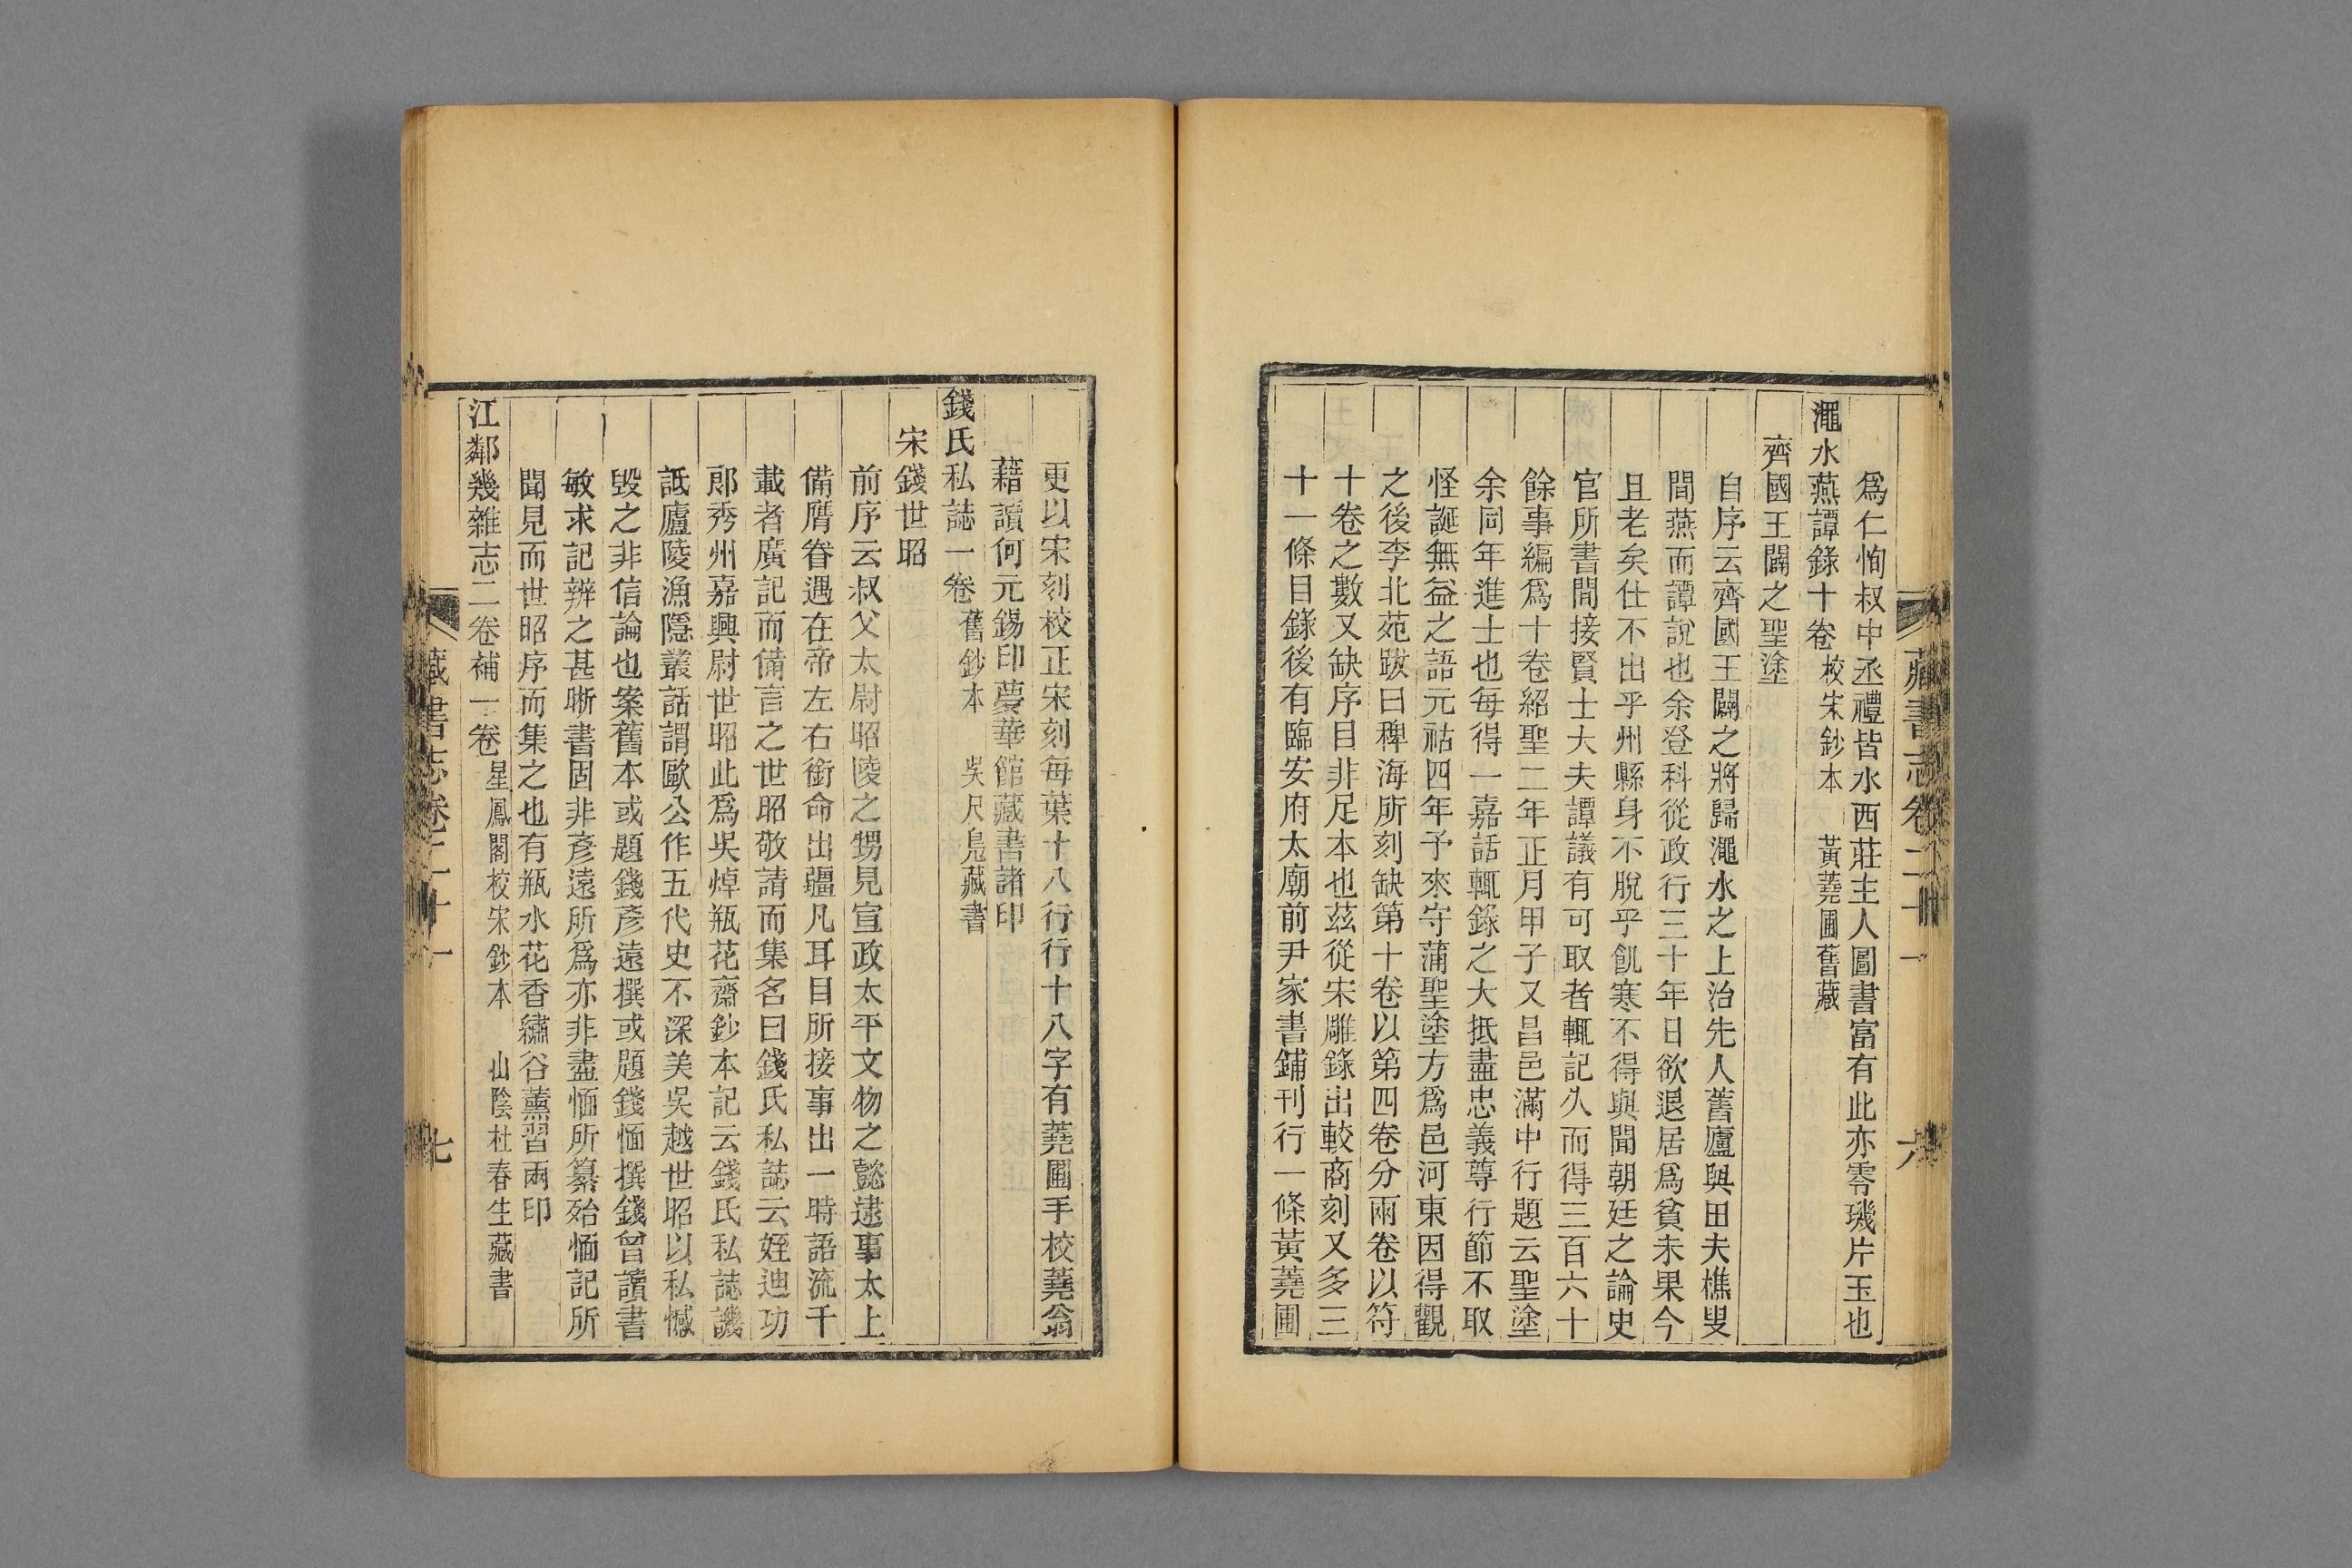 藏書志卷二十一
六
爲仁恂叔中丞禮皆水西莊主人圖書富有此亦零璣片玉也
澠水燕譚錄十卷 校宋鈔本 黃蕘圃舊藏
齊國王闢之聖塗
自序云齊國王闢之將歸澠水之上治先人舊廬與田夫樵叟
間燕而譚說也余登科從政行三十年日欲退居爲貧未果今
且老矣仕不出乎州縣身不脫乎飢寒不得與聞朝廷之論史
官所書間接賢士大夫譚議有可取者輒記久而得三百六十
餘事編爲十卷紹聖二年正月甲子又昌邑滿中行題云聖塗
余同年進士也每得一嘉話輒錄之大抵盡忠義尊行節不取
怪誕無益之語元祜四年予來守蒲聖塗方爲邑河東因得觀
之後李北苑跋曰稗海所刻缺第十卷以第四卷分兩卷以符
十卷之數又缺序目非足本也茲從宋雕錄出較商刻又多三
十一條目錄後有臨安府太廟前尹家書鋪刊行一條黃蕘圃
更以宋刻校正宋刻每葉十八行行十八字有蕘圃手校蕘翁
藉讀何元錫印夢華館藏書諸印
錢氏私誌一卷 舊鈔本 吳尺鳧藏書
宋錢世昭
前序云叔父太尉昭陵之甥見宣政太平文物之懿逮事太上
備膺眷遇在帝左右銜命出疆凡耳目所接事出一時語流千
載者廣記而備言之世昭敬請而集名曰錢氏私誌云姪迪功
郎秀州嘉興尉世昭此爲吳焯瓶花齋鈔本記云錢氏私誌譏
詆廬陵漁隱叢話謂歐公作五代史不深美吳越世昭以私憾
毀之非信論也案舊本或題錢彥遠撰或題錢愐撰錢曾讀書
敏求記辨之甚晰書固非彥遠所爲亦非盡愐所纂殆愐記所
聞見而世昭序而集之也有瓶水花香繡谷薰習兩印
江鄰幾雜志二卷補一卷 星鳳閣校宋鈔本 山陰杜春生藏書
藏書志卷二十一
七